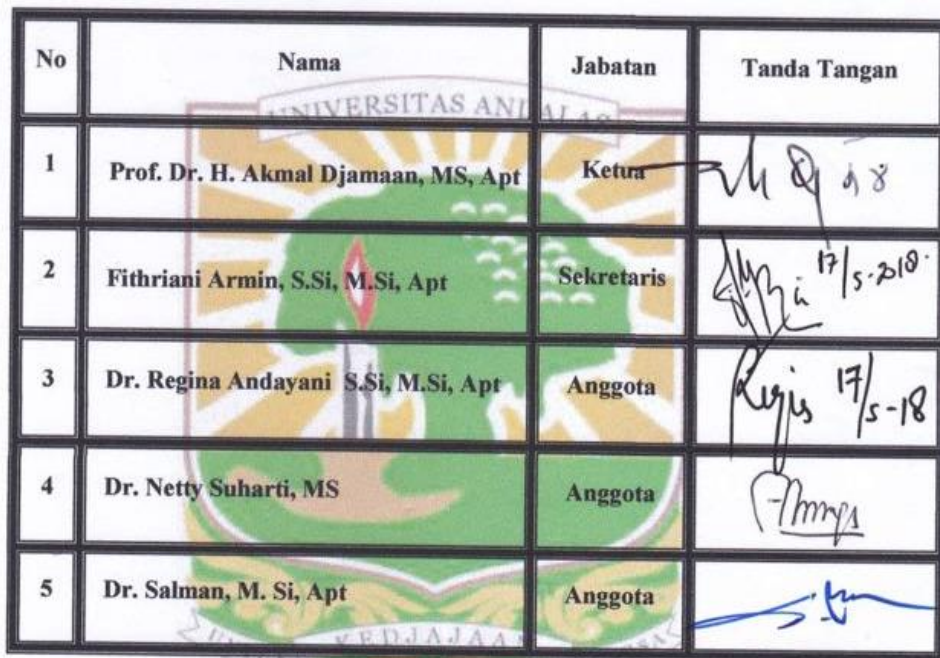 No Nama Jabatan Tanda Tangan
UNIVERSITAS ANDALAS
1 Prof. Dr. H. Akmal Djamaan, MS, Apt Ketua
2 Fithriani Armin, S.Si, M.Si, Apt Sekretaris 17/5-2018.
3 Dr. Regina Andayani S.Si, M.Si, Apt Anggota 17/5-18
4 Dr. Netty Suharti, MS Anggota
5 Dr. Salman, M. Si, Apt Anggota
KEDJAJAAN